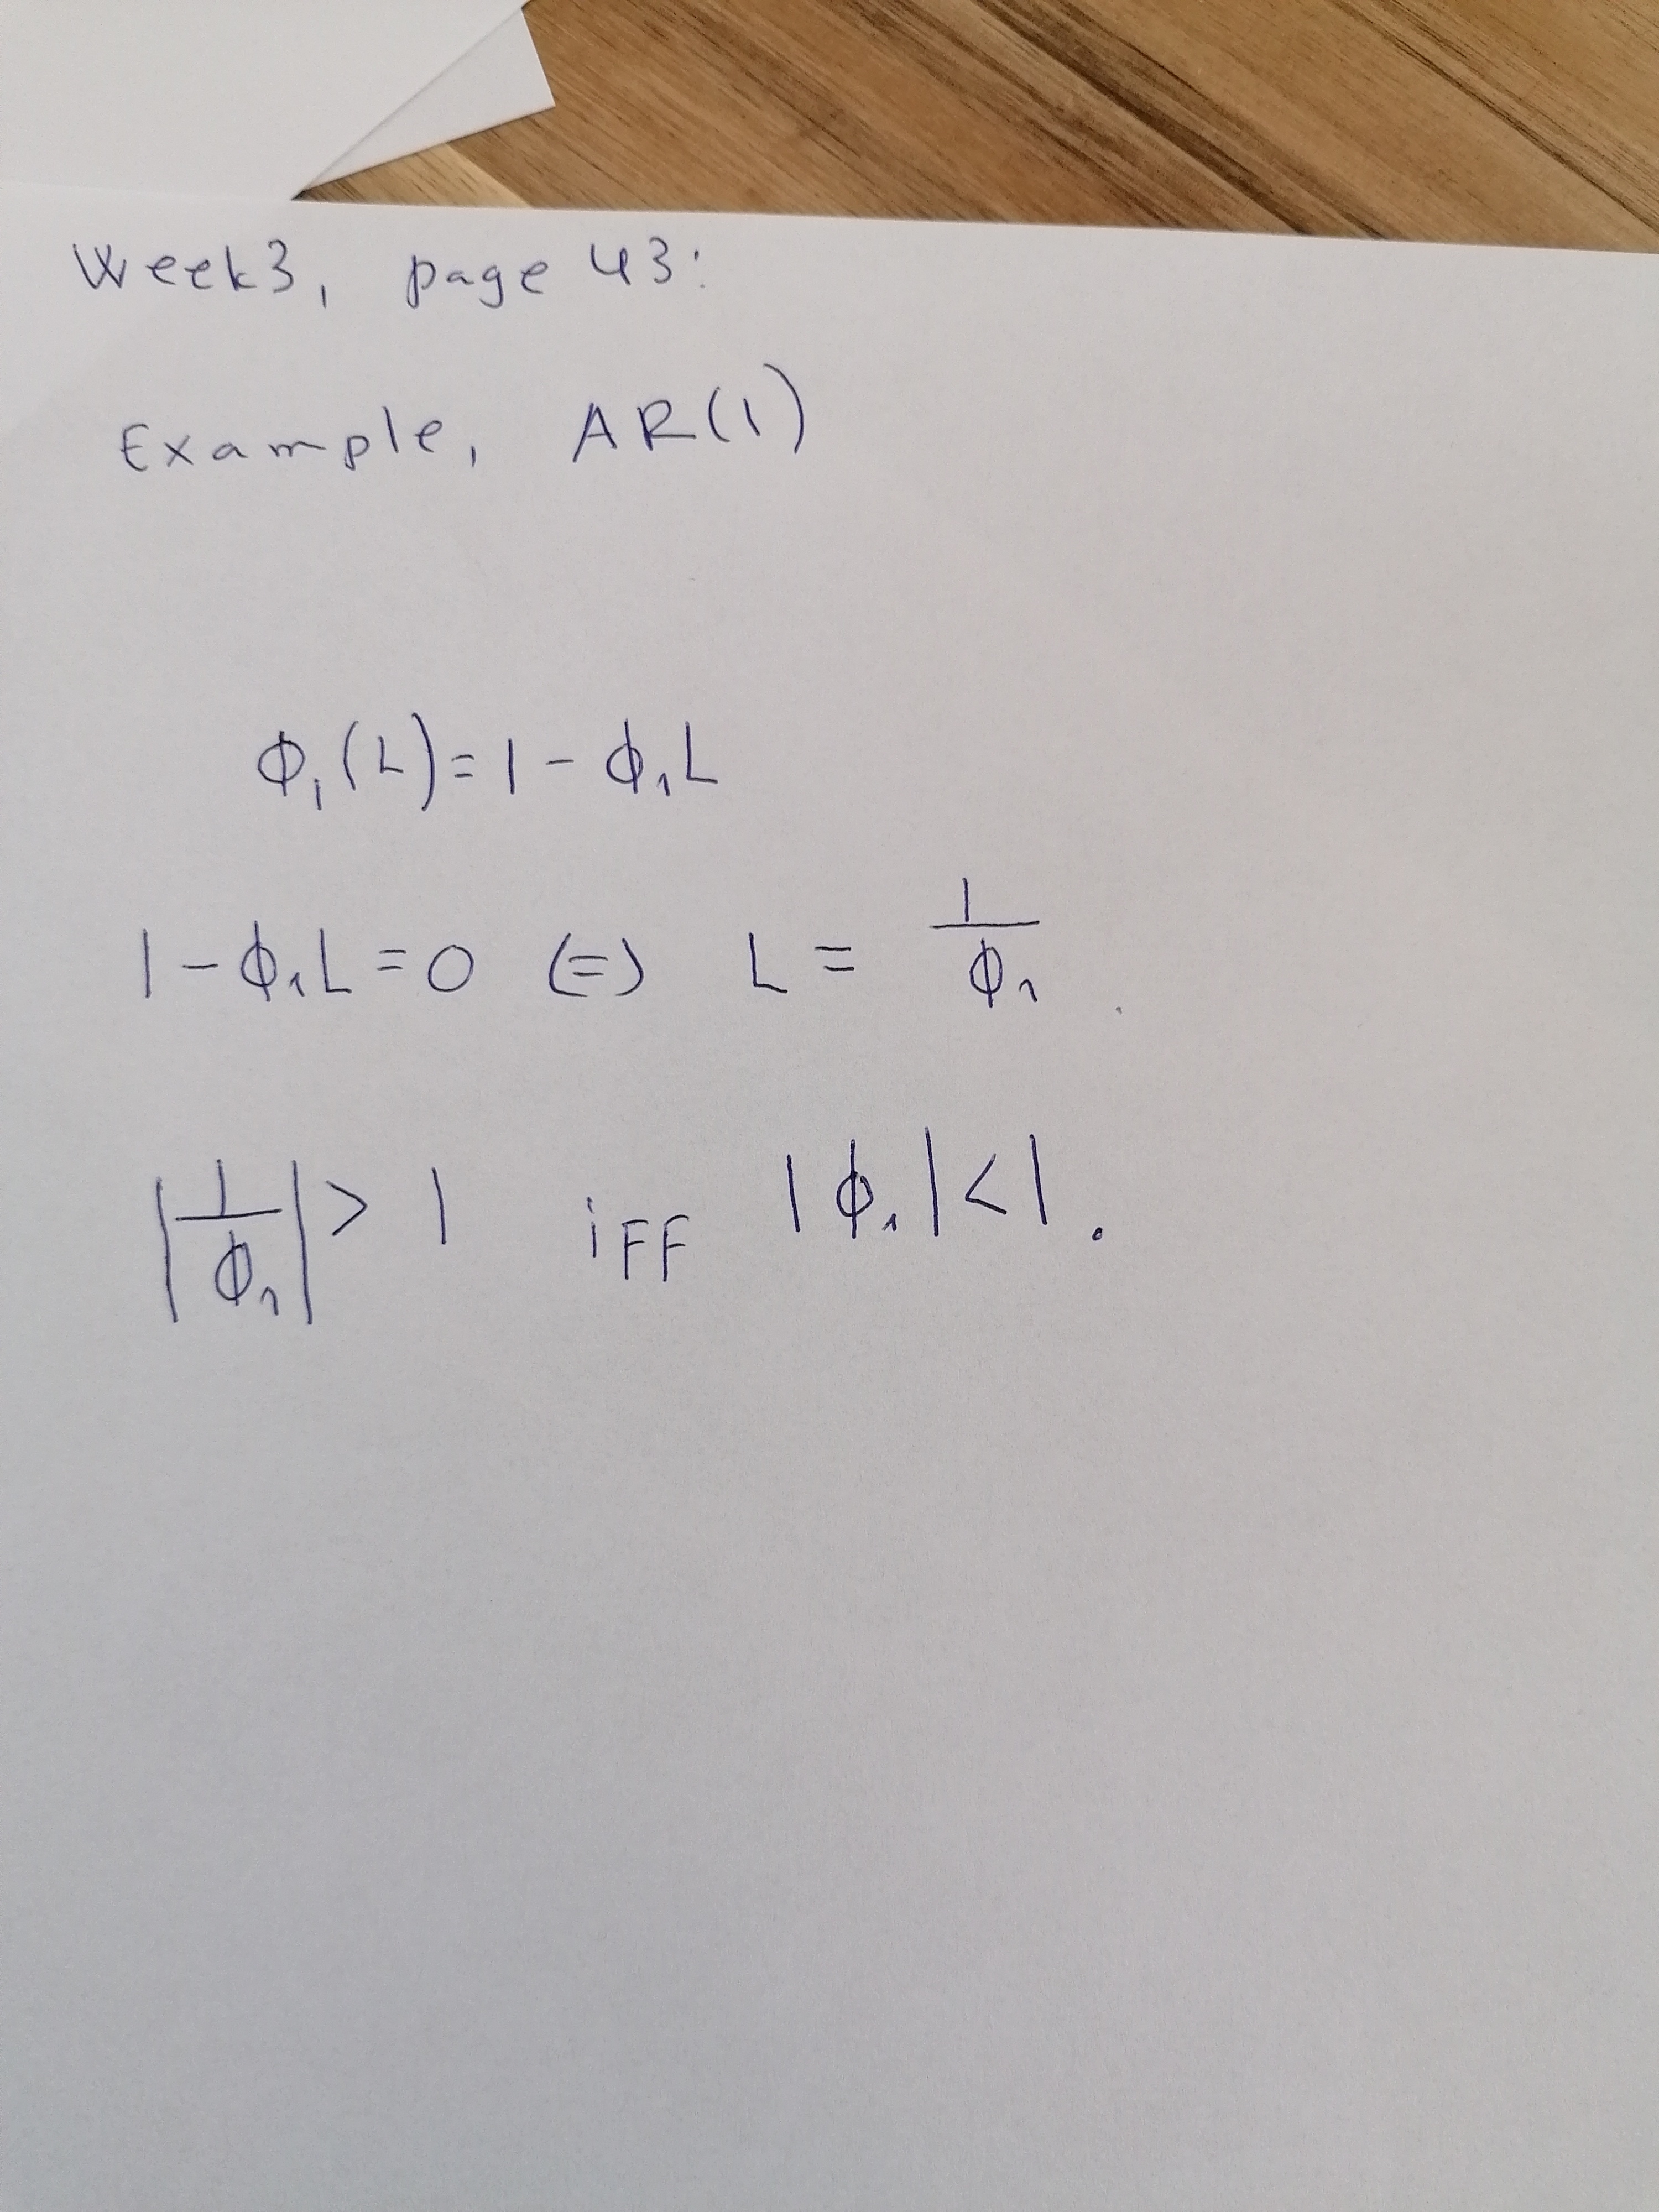 Week3, page 43:
Example, AR(1)
ϕ₁(L)=1-ϕ₁L
1-ϕ₁L=0 (=) L = 1/ϕ₁.
|1/ϕ₁|>1 iFF |ϕ₁|<1.